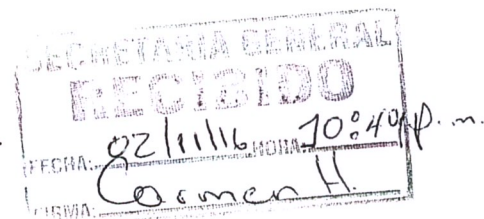 SECRETARIA GENERAL
RECIBIDO
FECHA: 02/11/16 HORA: 10:40 p.m.
FIRMA: Carmen H.